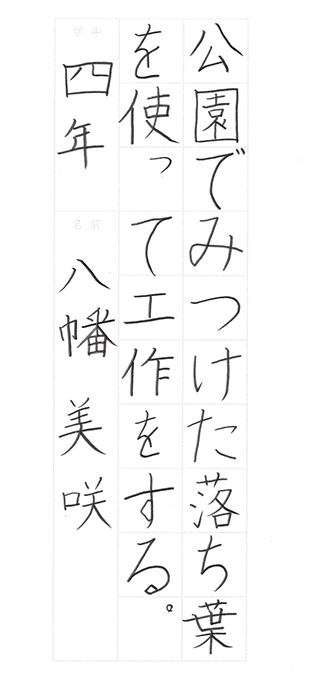 公園でみつけた落ち葉
を使って工作をする。
学年 四年 名前 八幡 美咲